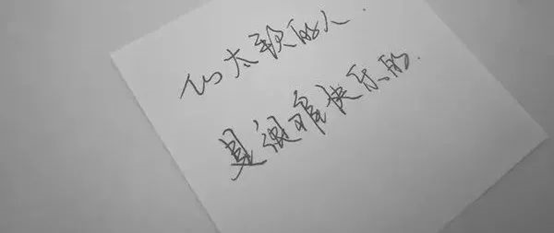 心太软的人.
是很难快乐的.